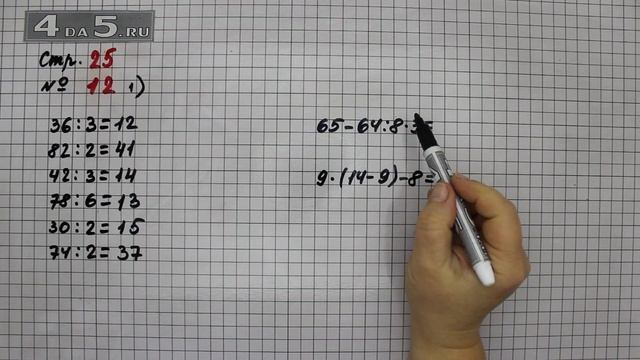 4 DA 5.RU
Стр. 25
№ 12 1)
36:3=12
82:2=41
42:3=14
78:6=13
30:2=15
74:2=37
65-64:8·3=
9·(14-9)-8=